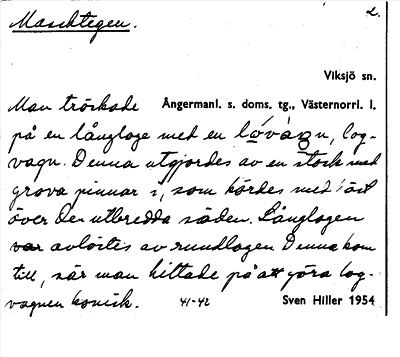 2.
Maschtegen.
Viksjö sn.
Man tröskade Ångermanl. s. doms. tg., Västernorrl. l.
på en långloge med en lovagn, log-
vagn. Denna utgjordes av en stock med
grova pinnar i, som kördes med häst
över den utbredda säden. Långlogen
var avlöstes av rundlogen. Denna kom
till, när man hittade på att göra log-
vagnen konisk. 41-42 Sven Hiller 1954